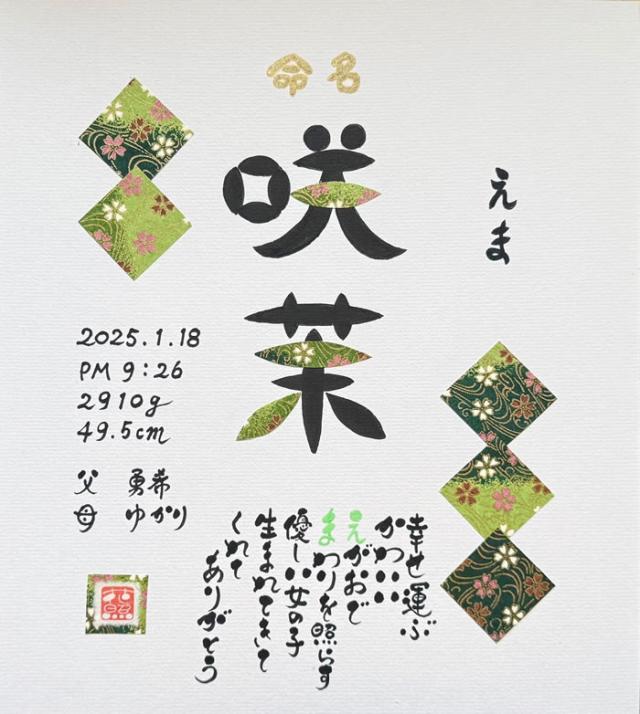 命名
咲茉
えま
2025.1.18
PM 9:26
2910g
49.5cm
父 勇希
母 ゆかり
幸せ運ぶ
かわいい
えがおで
まわりを照らす
優しい女の子
生まれてきて
くれて
ありがとう